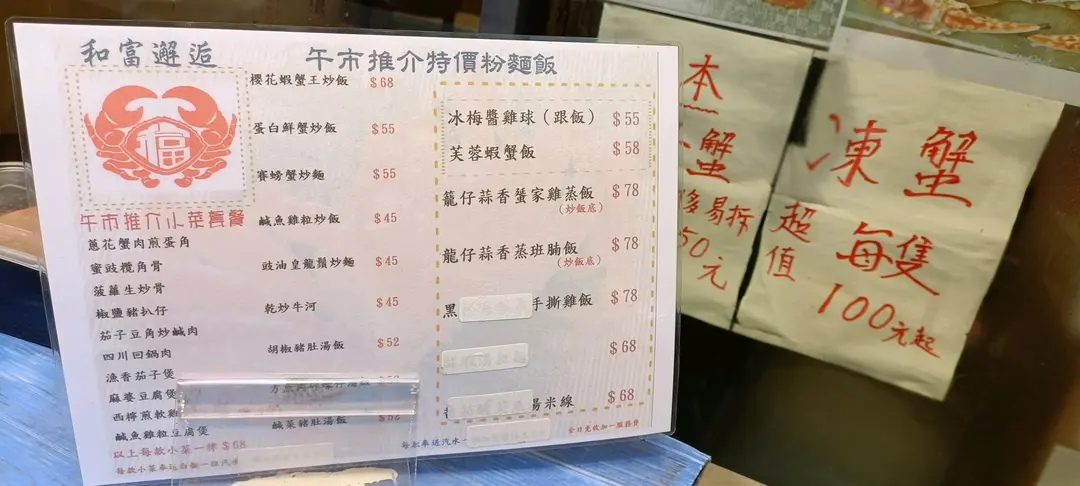 和富邂逅
午市推介特價粉麵飯
福
櫻花蝦蟹王炒飯 $68
蛋白鮮蟹炒飯 $55
賽螃蟹炒麵 $55
鹹魚雞粒炒飯 $45
豉油皇龍鬚炒麵 $45
乾炒牛河 $45
胡椒豬肚湯飯 $52
鹹菜豬肚湯飯 $52
午市推介小菜套餐
蔥花蟹肉煎蛋角
蜜豉欖角骨
菠蘿生炒骨
椒鹽豬扒仔
茄子豆角炒鹹肉
四川回鍋肉
漁香茄子煲
麻婆豆腐煲
西檸煎軟雞
鹹魚雞粒豆腐煲
以上每款小菜一律 $68
每款小菜送白飯一碗汽水
冰梅醬雞球（跟飯） $55
芙蓉蝦蟹飯 $58
籠仔蒜香蜑家雞蒸飯 $78
(炒飯底)
龍仔蒜香蒸班腩飯 $78
(炒飯底)
黑
手撕雞飯 $78
$68
湯米線 $68
全日免收加一服務費
每款奉送汽水一
本
蟹
易拆
50元
凍蟹
超值
每隻
100元起